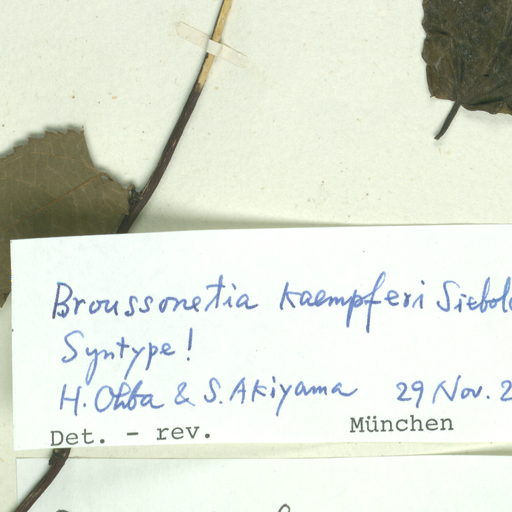 Broussonetia kaempferi Siebold
Syntype!
H. Ohba & S. Akiyama 29 Nov. 2
Det. - rev. München